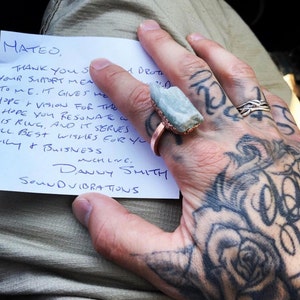 MATEO,
THANK YOU
YOUR SUPPORT MEANS
TO ME. IT GIVES ME
HOPE & VISION FOR THE
HOPE YOU RESONATE
THIS RING, AND IT SERVES
ALL BEST WISHES FOR YOU
FAMILY & BUISNESS
MUCH LOVE,
DANNY SMITH
SOUNDVIBRATIONS